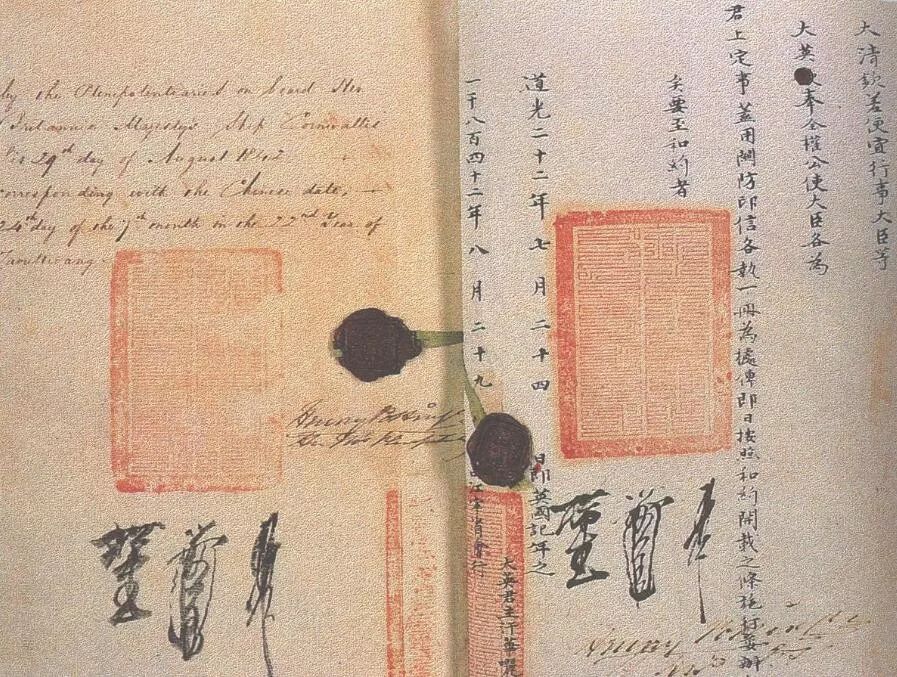 by the Plenipotentiaries on board Her
Britannic Majesty's Ship Cornwallis
this 29th day of August 1842
corresponding with the Chinese date,
24th day of the 7th month in the 22nd Year of
Taoukwang
Henry Pottinger
大清欽差便宜行事大臣等
大英奉全權公使大臣各為
君上定事蓋用關防印信各執一冊為據俾即日按照和約開載之條施行妥辦
矣要至和約者
道光二十二年七月二十四日即英國記年之
一千八百四十二年八月二十九由江寧省會行
大英君主汗華囇
Henry Pottinger